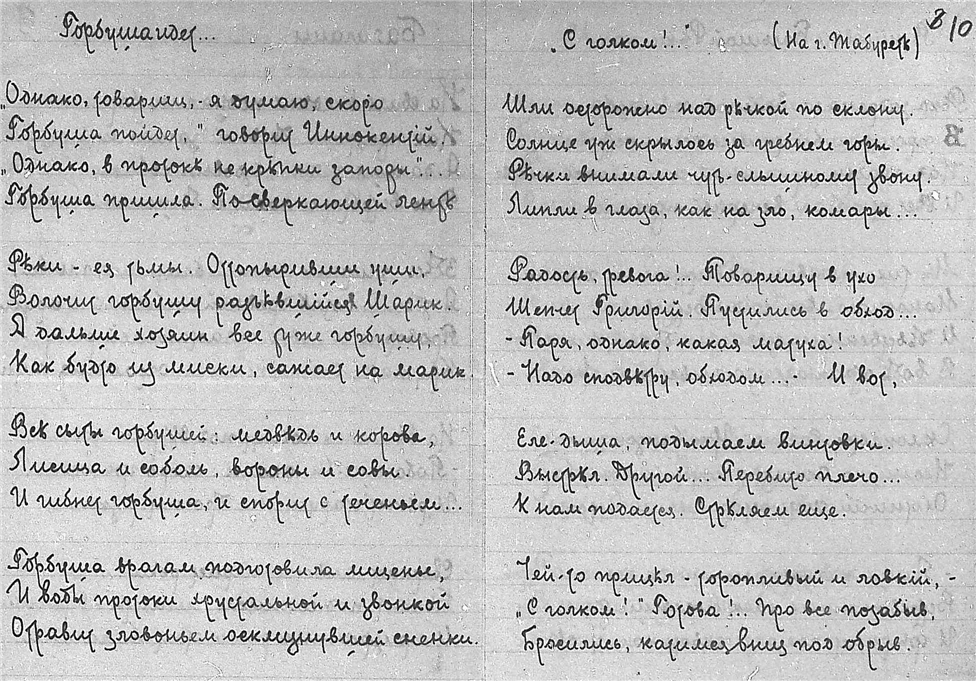 Горбуша идет...
„Однако, товарищ, - я думаю, скоро
Горбуша пойдет," говорит Иннокентій.
„Однако, в протокѣ не крѣпки запоры"...
Горбуша пришла. По сверкающей лентѣ
Рѣки - ея тьмы. Оттопыривши уши,
Волочит горбушу разъѣвшійся Шарик.
А дальше хозяин все туже горбушу,
Как будто из миски, сатает на марик.
Всѣ сыты горбушей: медвѣдь и корова,
Лисица и соболь, вороны и совы
И гибнет горбуша, и спорит с теченьем...
Горбуша врагам подготовила мщенье,
И воды протоки хрустальной и звонкой
Отравит зловоньем осклизнувшей сненки.
8/10
„С толком!.. (На г. Табуретѣ)
Шли осторожно над рѣчкой по склону.
Солнце уж скрылось за гребнем горы.
Рѣчки внимали чуть-слышному звону.
Липли в глаза, как на зло, комары...
Радость, тревога!.. Товарищу в ухо
Шепчет Григорій. Пустились в обход...
- Паря, однако, какая матуха!
- Надо сподвѣтру, обходом... - И вот,
Еле-дыша, подымаем винтовки.
Выстрѣл. Другой... Перебито плечо...
К нам подается. Стрѣляем еще.
Чей-то прицѣл - торопливый и ловкій, -
„С толком!" Готова!.. Про все позабыв,
Бросились, катимся вниз под обрыв.